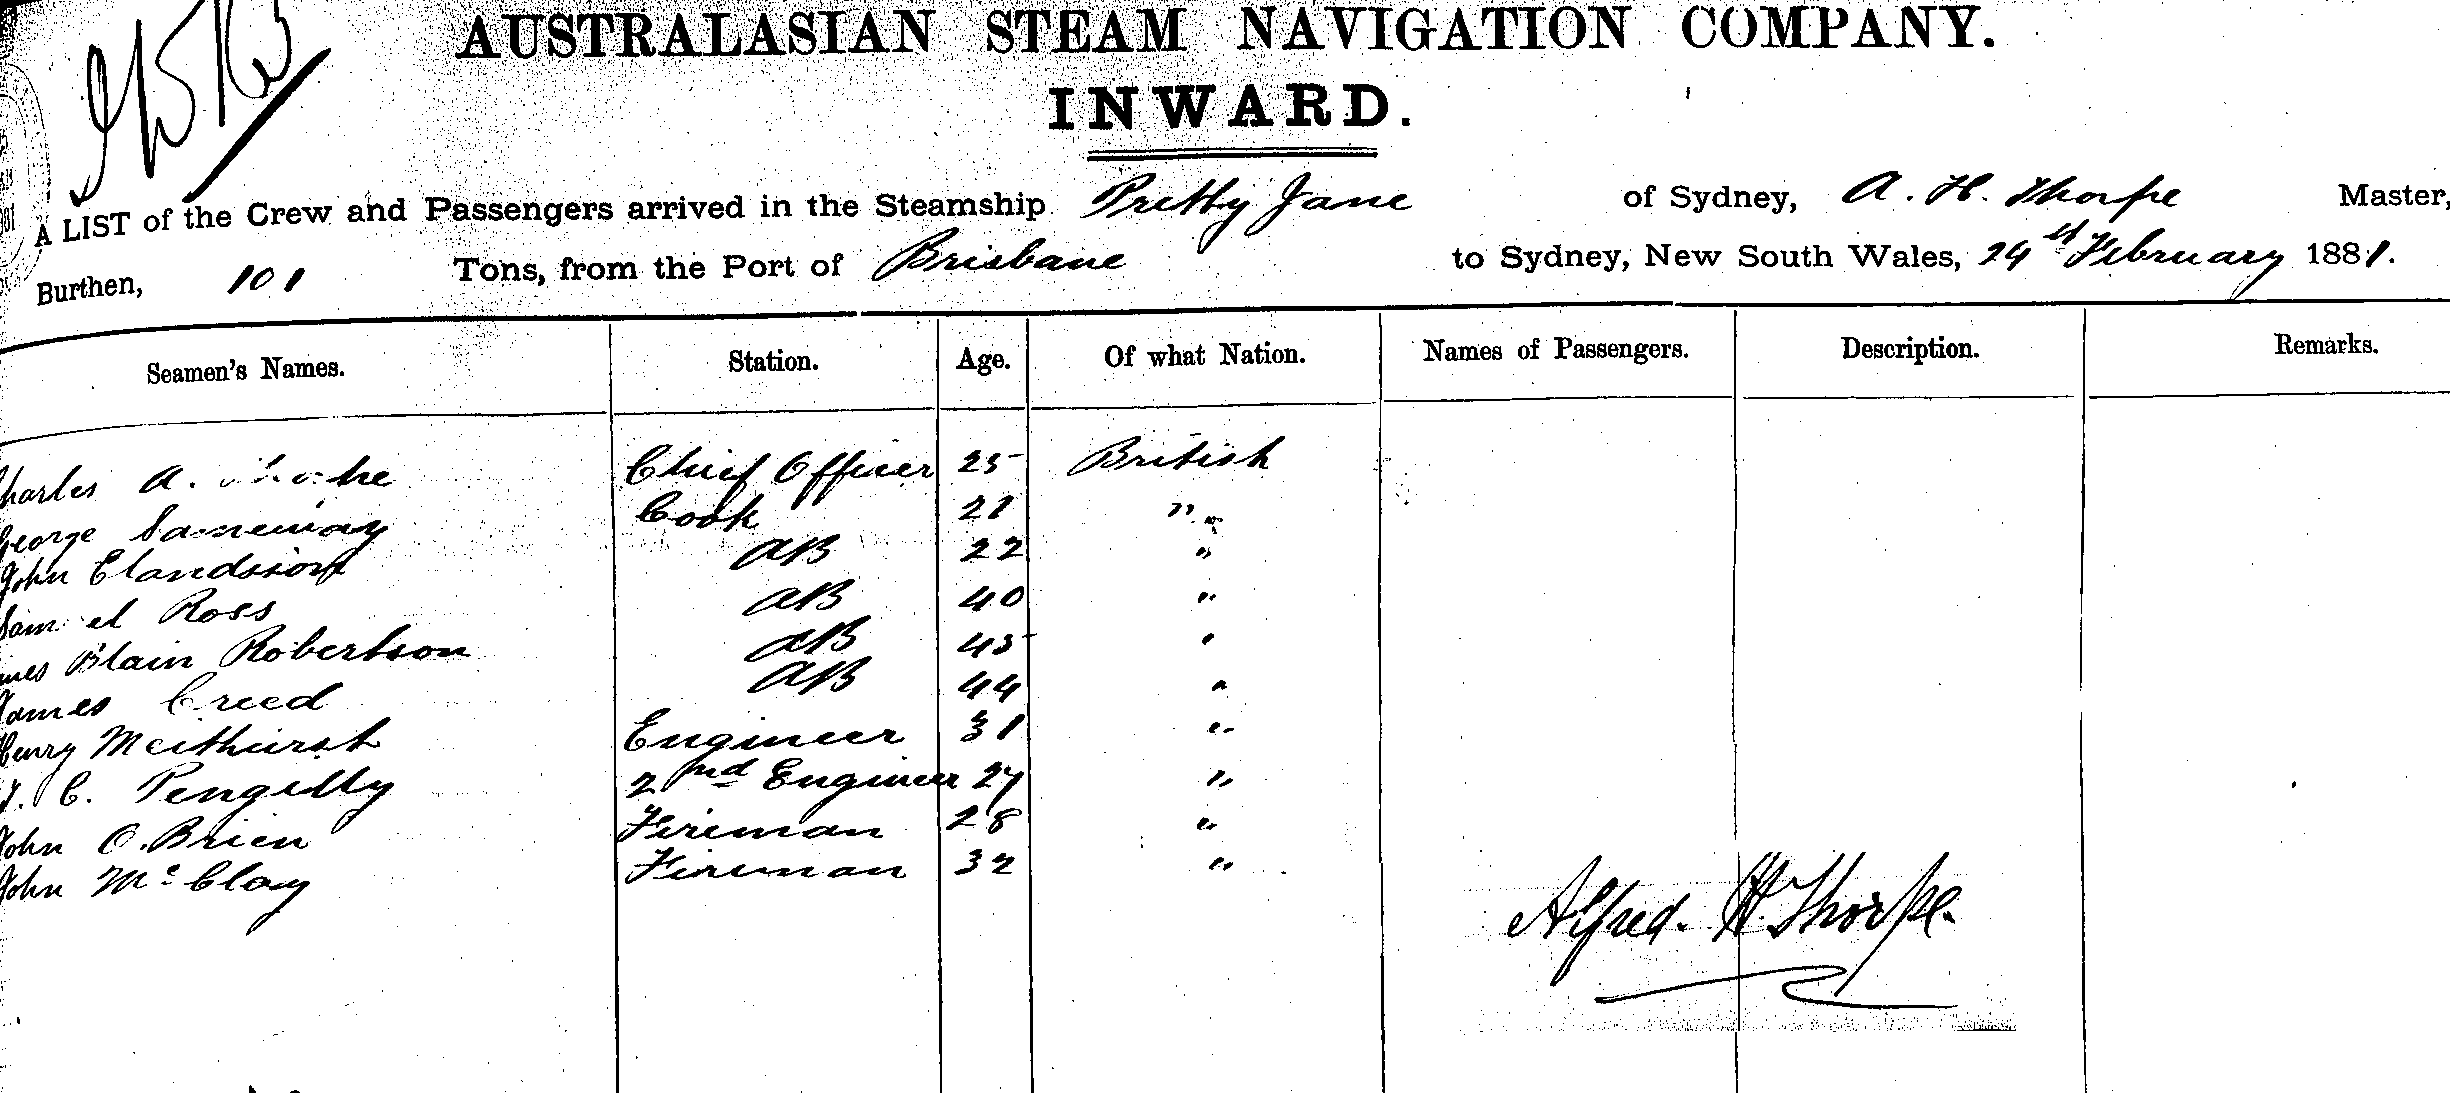 AUSTRALASIAN STEAM NAVIGATION COMPANY.
INWARD.
A LIST of the Crew and Passengers arrived in the Steamship Pretty Jane of Sydney, A. H. Thorpe Master,
Burthen, 101 Tons, from the Port of Brisbane to Sydney, New South Wales, February 1881.
Seamen's Names. Station. Age. Of what Nation. Names of Passengers. Description. Remarks.
Charles A. Chief Officer 25 British
George Cook 21 "
John AB 22 "
Samuel Ross AB 40 "
Blain Robertson AB 45 "
James Creed AB 44 "
Henry Engineer 31 "
C. Pengilly 2nd Engineer 27 "
John O.Brien Fireman 28 "
John Mc Clay Fireman 32 "
Alfred. H. Thorpe.